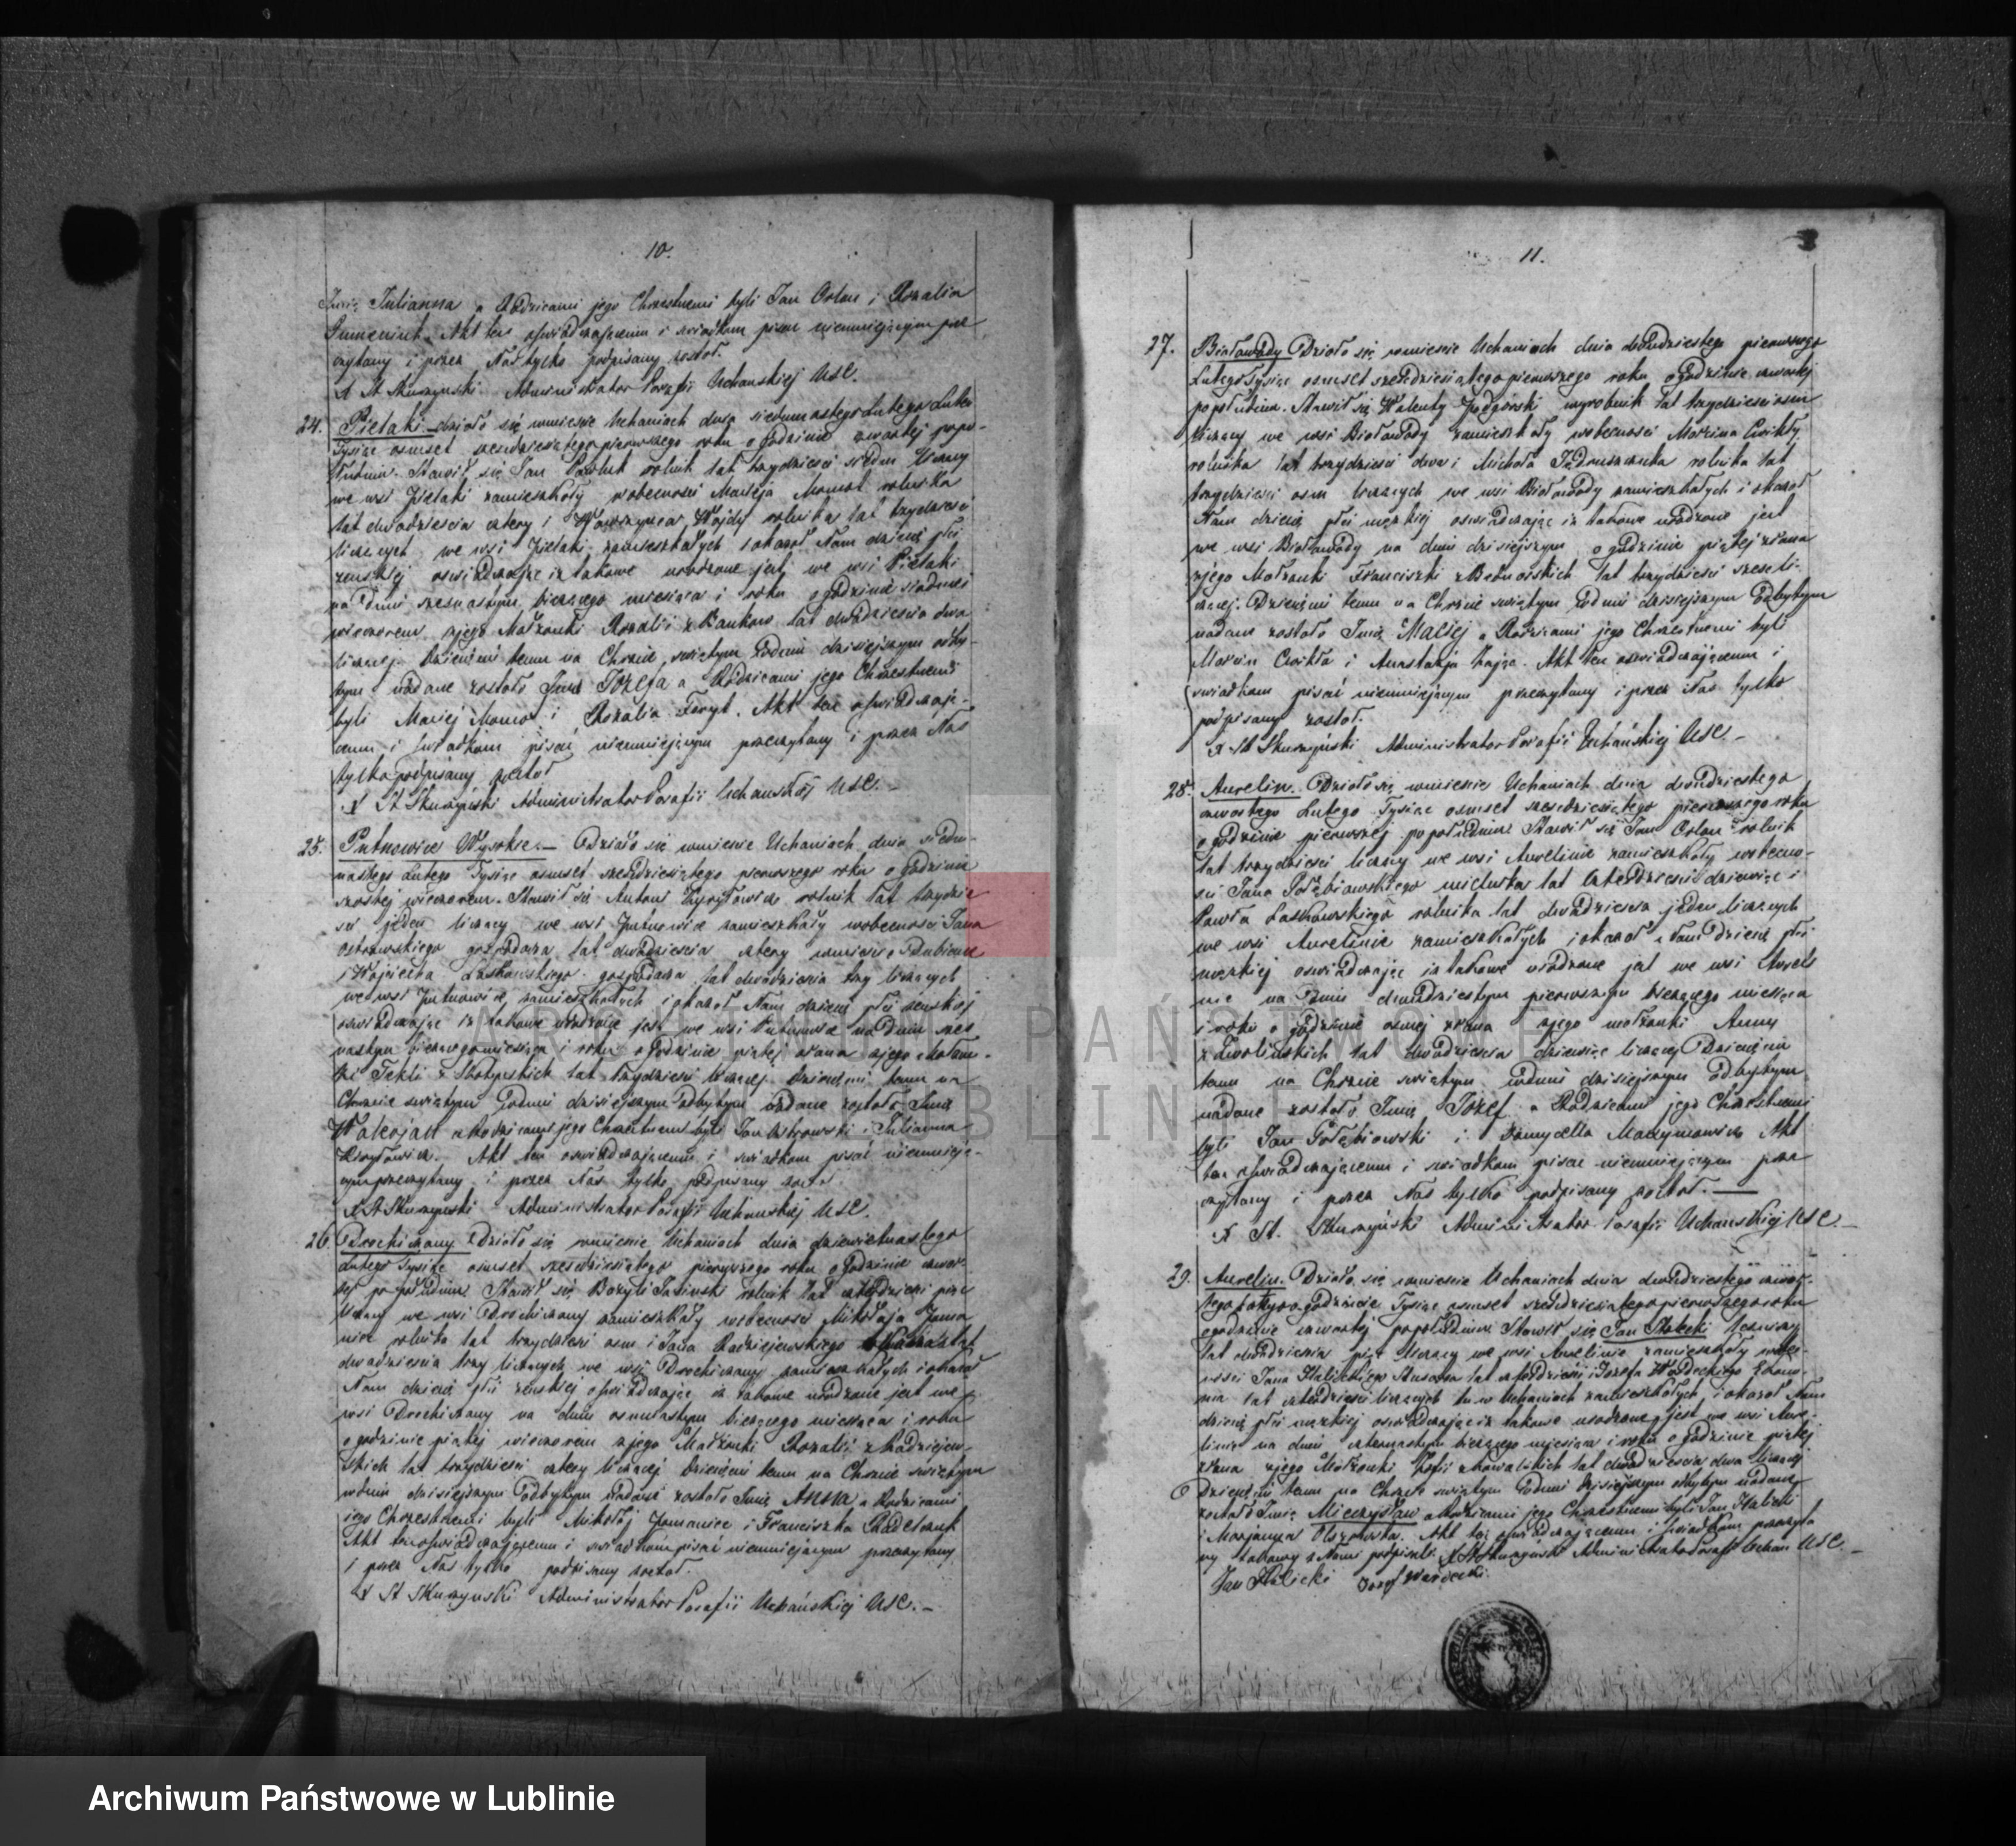 10.
Imię Julianna a Rodzicami jego Chrzestnemi byli Jan Orlan i Rozalia
Akt ten oświadczającemu i świadkom pisać nieumiejącym prze
czytany i przez Nas tylko podpisany został.
X St Skurzyński Administrator Parafii Uchańskiej USC.
24. Pielaki działo się w mieście Uchaniach dnia siedemnastego Lutego
Tysiąc osmset sześdziesiątego pierwszego roku o godzinie czwartej popo-
łudniu. Stawił się Jan Pawluk rolnik lat trzydzieści siedm liczący
we wsi Pielaki zamieszkały w obecności Macieja Momot rolnika
lat dwadzieścia cztery i Wawrzyńca Wojdy rolnika lat trzydzieści
liczących we wsi Pielaki zamieszkałych i okazał Nam dziecię płci
żenskiej oświadczając iż takowe urodzone jest we wsi Pielaki
na dniu szesnastym bieżącego miesiąca i roku o godzinie siodmej
wieczorem z jego Małżonki Rozalii z lat dwadzieścia dwa
liczącej. Dziecięciu temu na Chrzcie świętym w dniu dzisiejszym odby-
tym nadane zostało Imię Józefa a Rodzicami jego Chrzestnemi
byli Maciej Momot i Rozalia Feryt. Akt ten oświadczają-
cemu i świadkom pisać nieumiejącym przeczytany i przez Nas
tylko podpisany został
X St Skurzyński Administrator Parafii Uchańskiej USC. -
25. Putnowice Wysokie. - Działo się w mieście Uchaniach dnia siedm-
nastego Lutego Tysiąc osmset sześdziesiątego pierwszego roku o godzinie
szóstej wieczorem. Stawił się Antoni rolnik lat trzydzie
ści jeden liczący we wsi Putnowice zamieszkały w obecności Jana
Ostrowskiego gospodarza lat dwadzieścia cztery w mieście Dubience
i Wojciecha Laskowskiego gospodarza lat dwadzieścia trzy liczących
we wsi Putnowice zamieszkałych i okazał Nam dziecię płci
oświadczając iż takowe urodzone jest we wsi Putnowice na dniu szes
nastym bieżącego miesiąca i roku o godzinie piątej zrana z jego Małżon-
ki Tekli z lat trzydzieści liczącej. Dziecięciu temu na
Chrzcie świętym w dniu dzisiejszym odbytym nadane zostało Imię
Waleryan a Rodzicami jego Chrzestnemi byli Jan Ostrowski i Julianna
Akt ten oświadczającemu i świadkom pisać nieumieją-
cym przeczytany i przez Nas tylko podpisany został.
X St Skurzyński Administrator Parafii Uchańskiej USC.
26 Drochiczany Działo się w mieście Uchaniach dnia dziewietnastego
Lutego Tysiąc osmset sześdziesiątego pierwszego roku o godzinie czwar
tej po południu. Stawił się Bazyli Jasinski rolnik lat czterdzieści pięć
liczący we wsi Drochiczany zamieszkały w obecności Mikołaja
rolnika lat trzydzieści osm i Jana Radziejewskiego
dwadzieścia trzy liczących we wsi Drochiczany zamieszkałych i okazał
Nam dziecię płci żenskiej oświadczając iż takowe urodzone jest we
wsi Drochiczany na dniu osmnastym bieżącego miesiąca i roku
o godzinie piątej wieczorem z jego Małżonki Rozalii z Radziejew-
skich lat trzydzieści cztery liczącej Dziecięciu temu na Chrzcie świętym
w dniu dzisiejszym odbytym nadane zostało Imię Anna a Rodzicami
jego Chrzestnemi byli Mikołaj i Franciszka
Akt ten oświadczającemu i świadkom pisać nieumiejącym przeczytany
i przez Nas tylko podpisany został.
X St Skurzyński Administrator Parafii Uchańskiej USC. -
11.
27. Białowody Działo się w mieście Uchaniach dnia dwudziestego pierwszego
Lutego Tysiąc osmset sześdziesiątego pierwszego roku o godzinie czwartej
popołudniu. Stawił się Walenty Podgórski wyrobnik lat trzydzieści osm
liczący we wsi Białowody zamieszkały w obecności Marcina Cwikły
rolnika lat trzydzieści dwa i Michała Jędruszczuka rolnika lat
trzydzieści osm liczących we wsi Białowody zamieszkałych i okazał
Nam dziecię płci męzkiej oświadczając iż takowe urodzone jest
we wsi Białowody na dniu dzisiejszym o godzinie piątej zrana
z jego Małżonki Franciszki z Bednarskich lat trzydzieści sześć li-
czącej. Dziecięciu temu na Chrzcie świętym w dniu dzisiejszym odbytym
nadane zostało Imię Maciej a Rodzicami jego Chrzestnemi byli
Marcin Cwikła i Anastazja Zając. Akt ten oświadczającemu i
świadkom pisać nieumiejącym przeczytany i przez Nas tylko
podpisany został.
X St Skurzyński Administrator Parafii Uchańskiej USC. -
28. Aurelin. Działo się w mieście Uchaniach dnia dwudziestego
czwartego Lutego Tysiąc osmset sześdziesiątego pierwszego roku
o godzinie pierwszej popołudniu Stawił się Jan Orlan rolnik
lat trzydzieści liczący we wsi Aurelinie zamieszkały w obecno-
ści Jana Gołębiowskiego lat czterdzieści dziewięć i
Pawła Laskowskiego rolnika lat dwadzieścia jeden liczących
we wsi Aurelinie zamieszkałych i okazał Nam dziecię płci
męzkiej oświadczając iż takowe urodzone jest we wsi Aureli
nie na dniu dwudziestym pierwszym bieżącego miesiąca
i roku o godzinie osmej zrana z jego małżonki Anny
z Zwolińskich lat dwadzieścia dziewięć liczącej Dziecięciu
temu na Chrzcie świętym w dniu dzisiejszym odbytym
nadane zostało Imię Józef a Rodzicami jego Chrzestnemi
byli Jan Gołębiowski i Domycella Maxymowicz Akt
ten oświadczającemu i świadkom pisać nieumiejącym prze
czytany i przez Nas tylko podpisany został. —
X St. Skurzyński Administrator Parafii Uchańskiej USC. -
29. Aurelin. Działo się w mieście Uchaniach dnia dwudziestego czwar-
tego Lutego Tysiąc osmset sześdziesiątego pierwszego roku
o godzinie czwartej popołudniu Stawił się Jan
lat dwadzieścia pięć liczący we wsi Aurelinie zamieszkały w obec-
ności Jana Halickiego lat czterdzieści i Józefa Wardeckiego
lat czterdzieści liczących tu w Uchaniach zamieszkałych i okazał Nam
dziecię płci męzkiej oświadczając iż takowe urodzone jest we wsi Aure-
linie na dniu czternastym bieżącego miesiąca i roku o godzinie piątej
zrana z jego Małżonki Zofii z Kowalskich lat dwadzieścia dwa liczącej
Dziecięciu temu na Chrzcie świętym w dniu dzisiejszym odbytym nadane
zostało Imię Mieczysław a Rodzicami jego Chrzestnemi byli Jan Halicki
i Marjanna Olszewska. Akt ten oświadczającemu i świadkom przeczyta
ny podpisali. X St Skurzyński Administrator Parafii Uchan USC. -
Jan Halicki Jozef Wardecki
ARCHIWUM PAŃSTWOWE
W LUBLINIE
Archiwum Państwowe w Lublinie